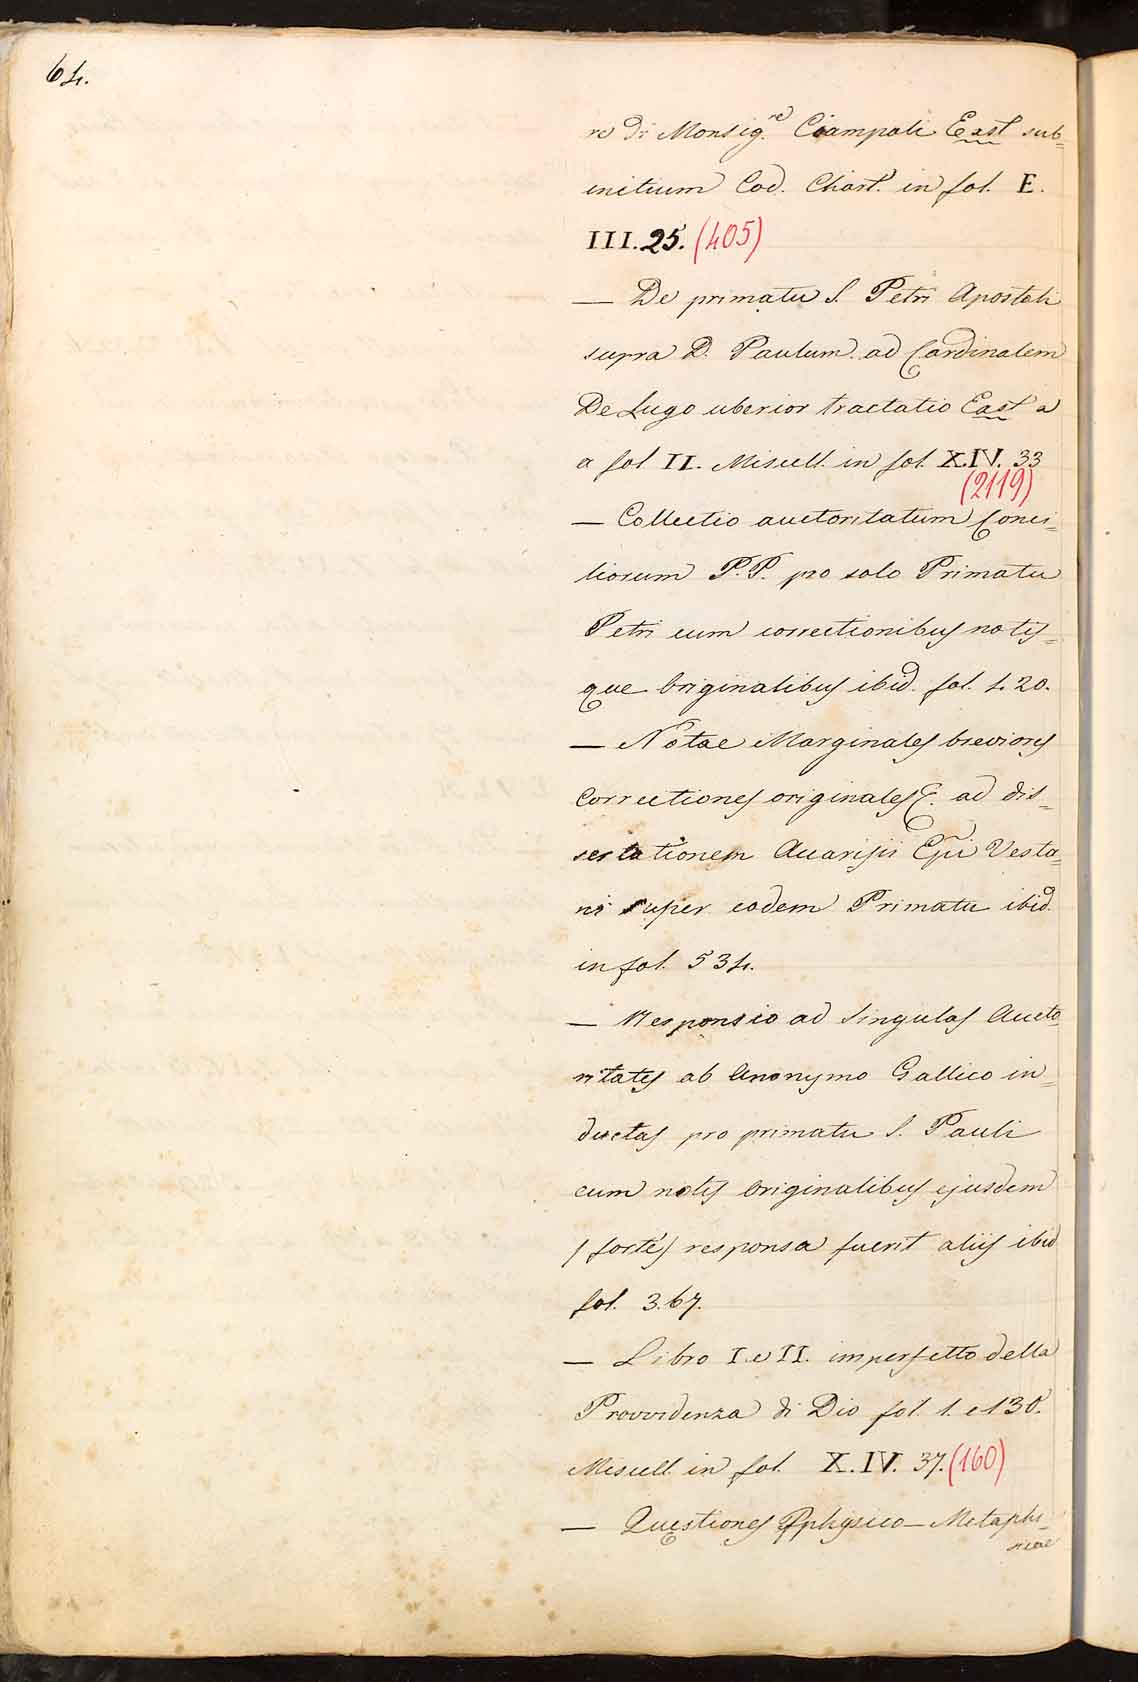 64.
re di Monsig.re Ciampoli Exst sub=
initium Cod. Chart. in fol. E.
III.25. (405)
— De primatu S. Petri Apostoli
supra D. Paulum ad Cardinalem
De Lugo uberior tractatio Exst a
a fol. II. Miscell. in fol. X.IV. 33
(2119)
— Collectio auctoritatum Conci=
liorum P.P. pro solo Primatu
Petri cum correctionibus notis=
que originalibus ibid. fol. 1.20.
— Notae Marginales breviores
Correctiones originales E. ad dis=
sertationem Avarisii Epi Vesta=
ni super eodem Primatu ibid.
in fol. 534.
— Responsio ad singulas Aucto=
ritates ab Anonymo Gallico in=
ductas pro primatu S. Pauli
cum notis originalibus ejusdem
/ forte / responsa fuerit aliis ibid
fol. 3.67.
— Libro I. e II. imperfetto della
Provvidenza di Dio fol. 1. e 130.
Miscell. in fol. X.IV. 37. (160)
— Questiones Physico-Metaphi=
sicae